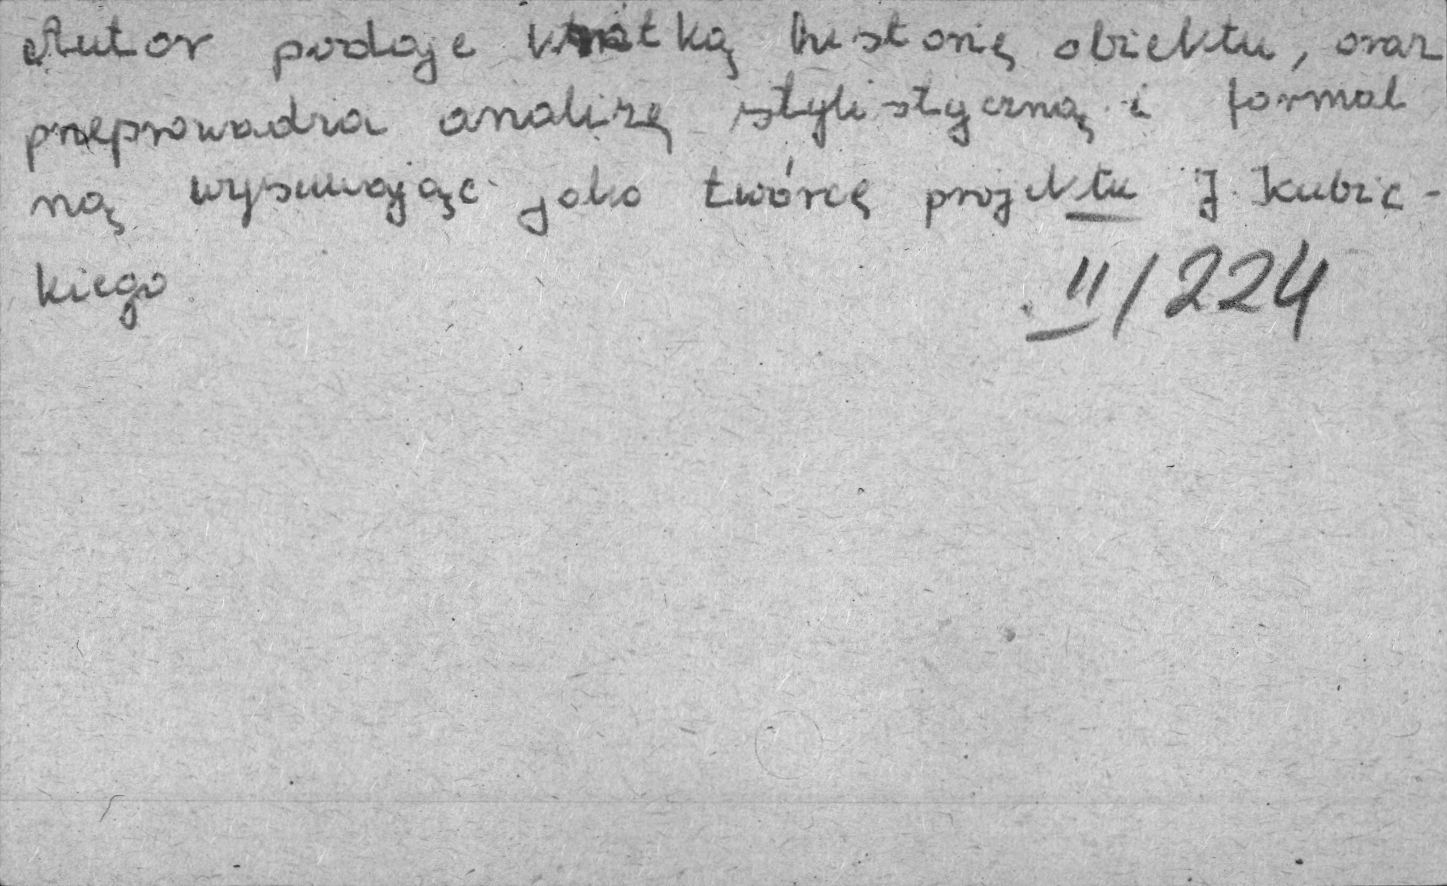 Autor podaje krótką historię obiektu, oraz
przeprowadza analizę stylistyczną i formal
ną wysuwając jako twórcę projektu J. Kubic-
kiego
II/224